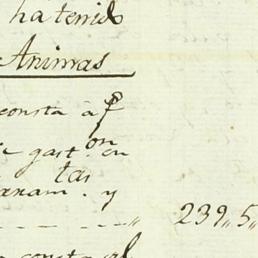 ha tenido
Animas
consta a f
gast.on en
tas y
239,,5,,
consta al